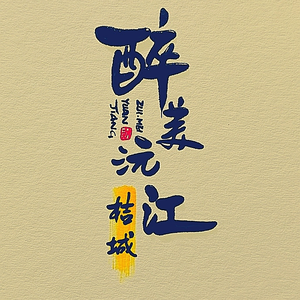 醉美沅江
ZUI·MEI
YUAN
JIANG
桔城